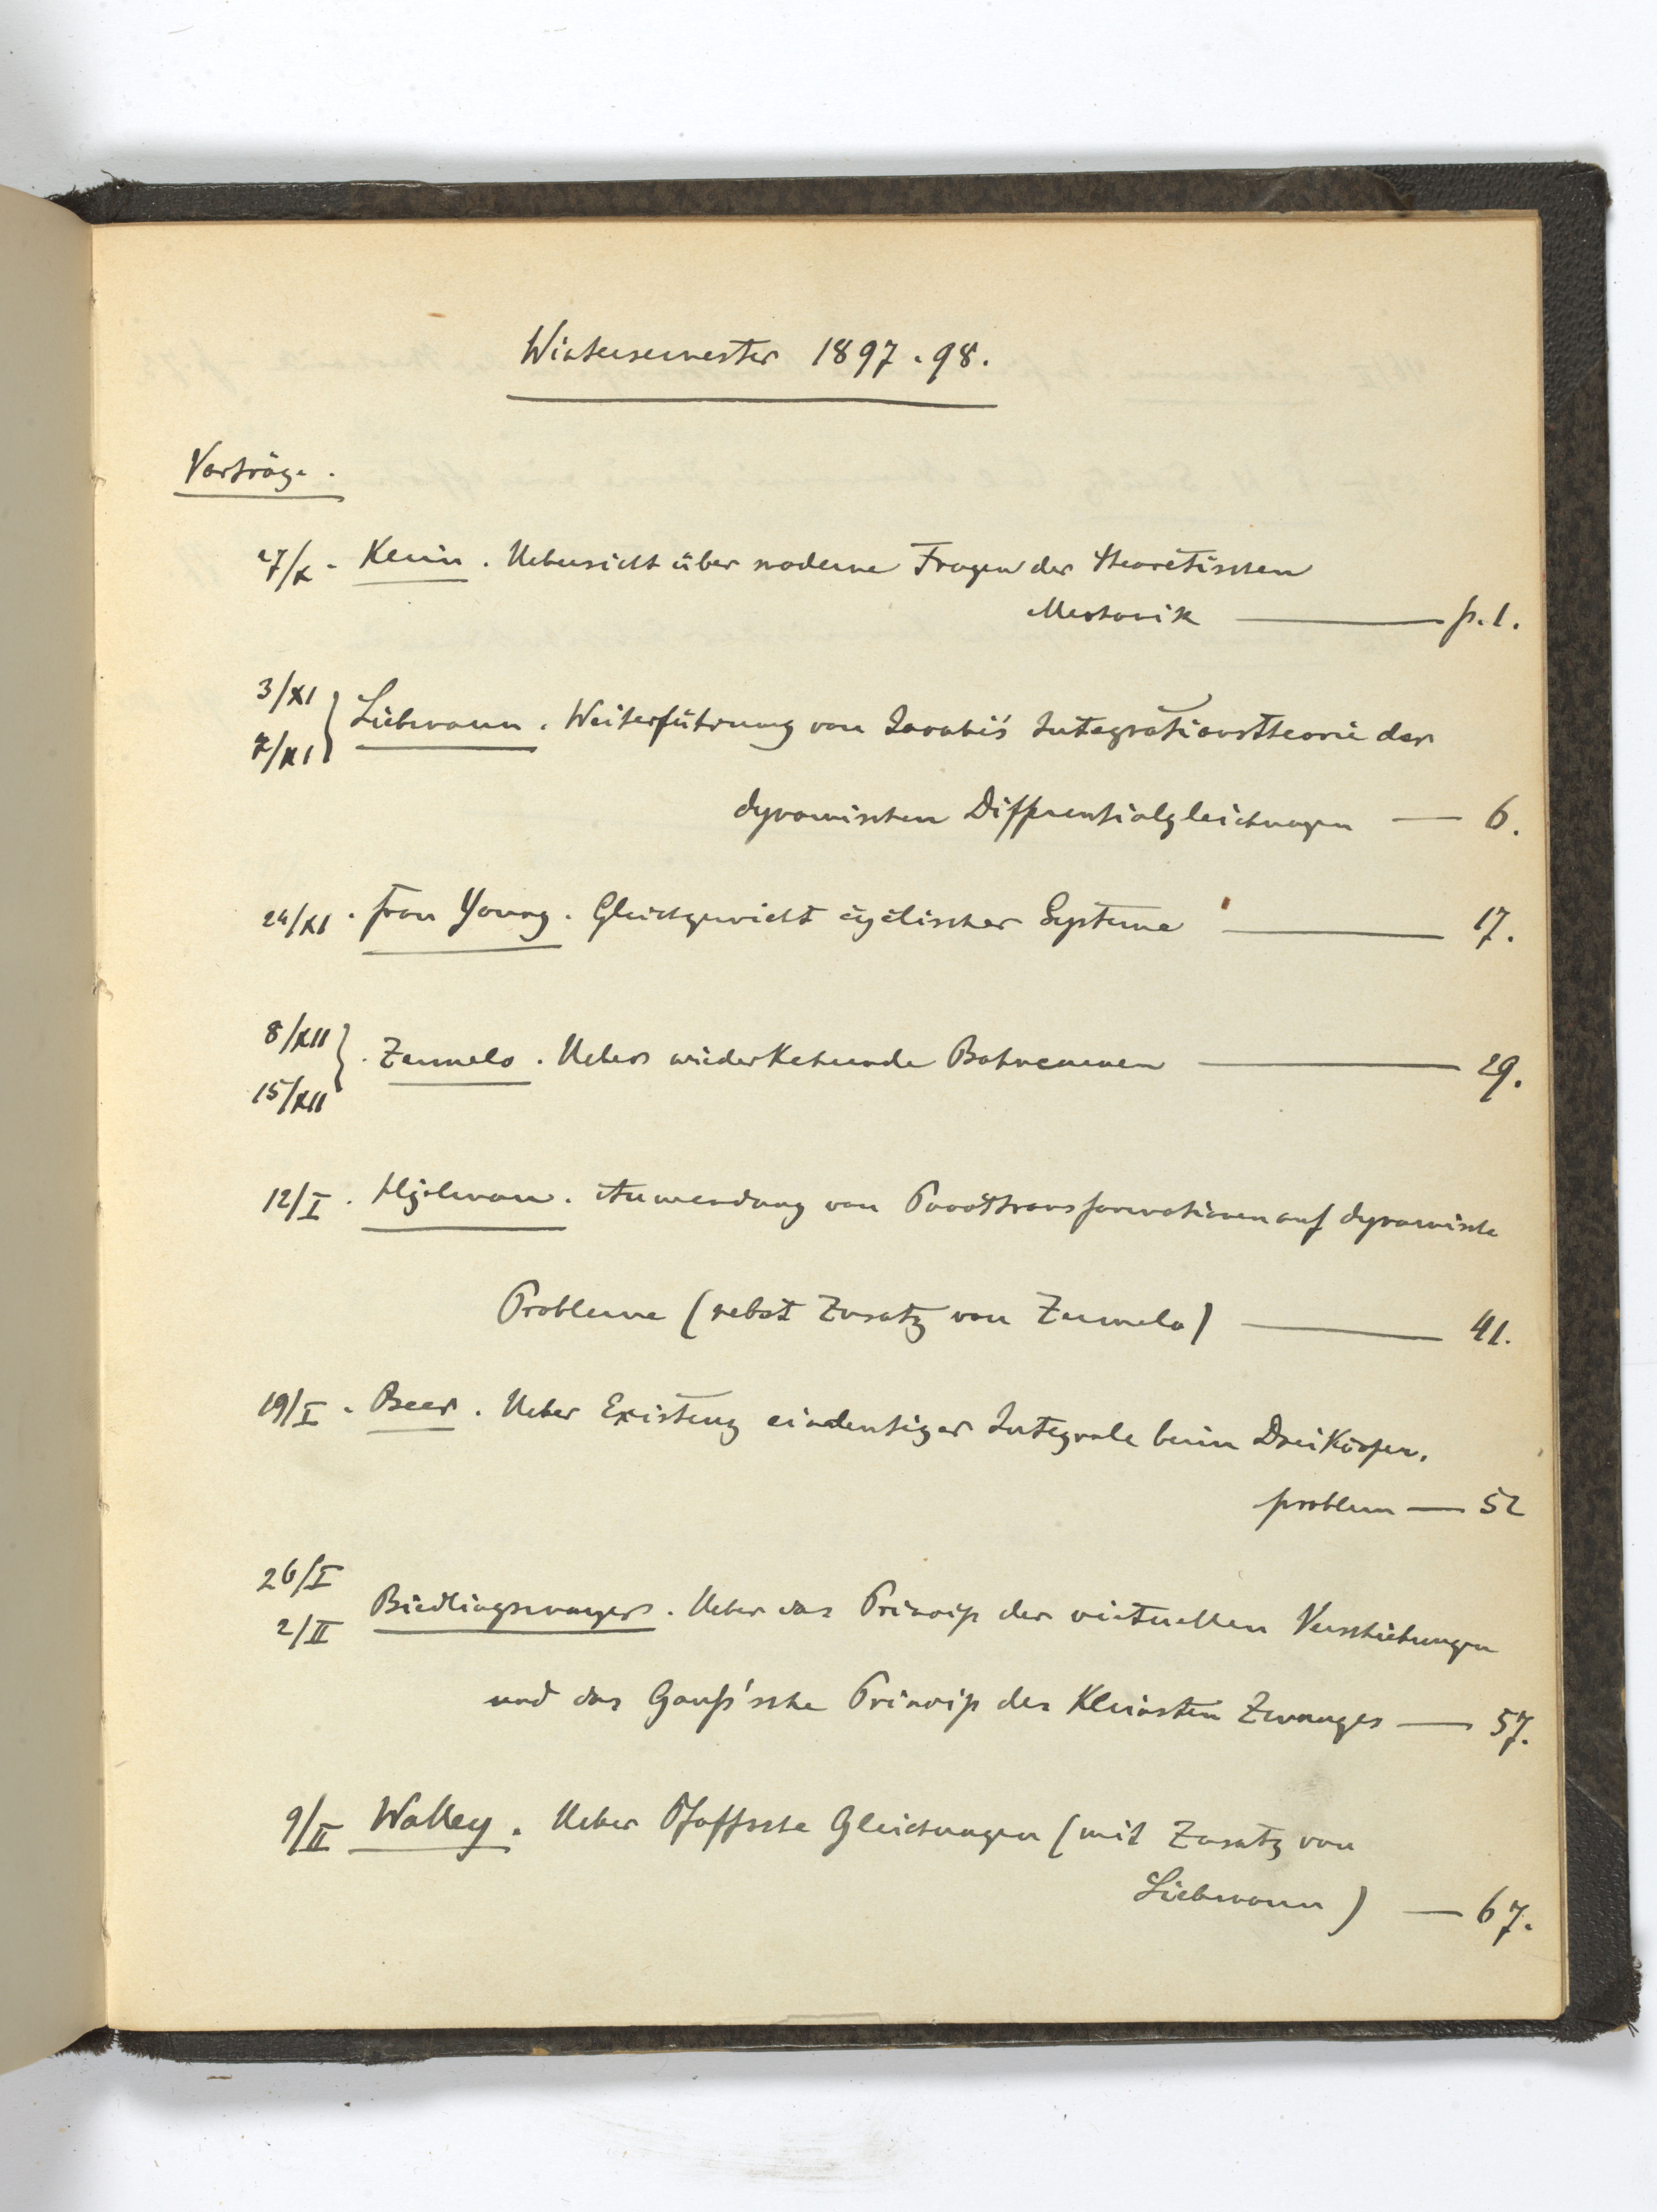 Wintersemester 1897.98.
Vorträge.
27/X. Klein. Uebersicht über moderne Fragen der theoretischen
Mechanik — p. 1.
3/XI
7/XI } Liebmann. Weiterführung von Jacobi's Integrationstheorie der
dynamischen Differentialgleichungen — 6.
24/XI. Frau Young. Gleichgewicht cyclischer Systeme — 17.
8/XII
15/XII } . Zermelo. Ueber wiederkehrende Bahncurven — 29.
12/I. Anwendung von Punkttransformationen auf dynamische
Probleme (nebst Zusatz von Zermelo) — 41.
19/I. Beer. Ueber Existenz eindeutiger Integrale beim Dreikörper-
problem — 52
26/I
2/II Bidlingmayer. Ueber das Princip der virtuellen Verschiebungen
und das Gauß'sche Princip des kleinsten Zwanges — 57.
9/II Walley. Ueber Pfaffsche Gleichungen (mit Zusatz von
Liebmann) — 67.